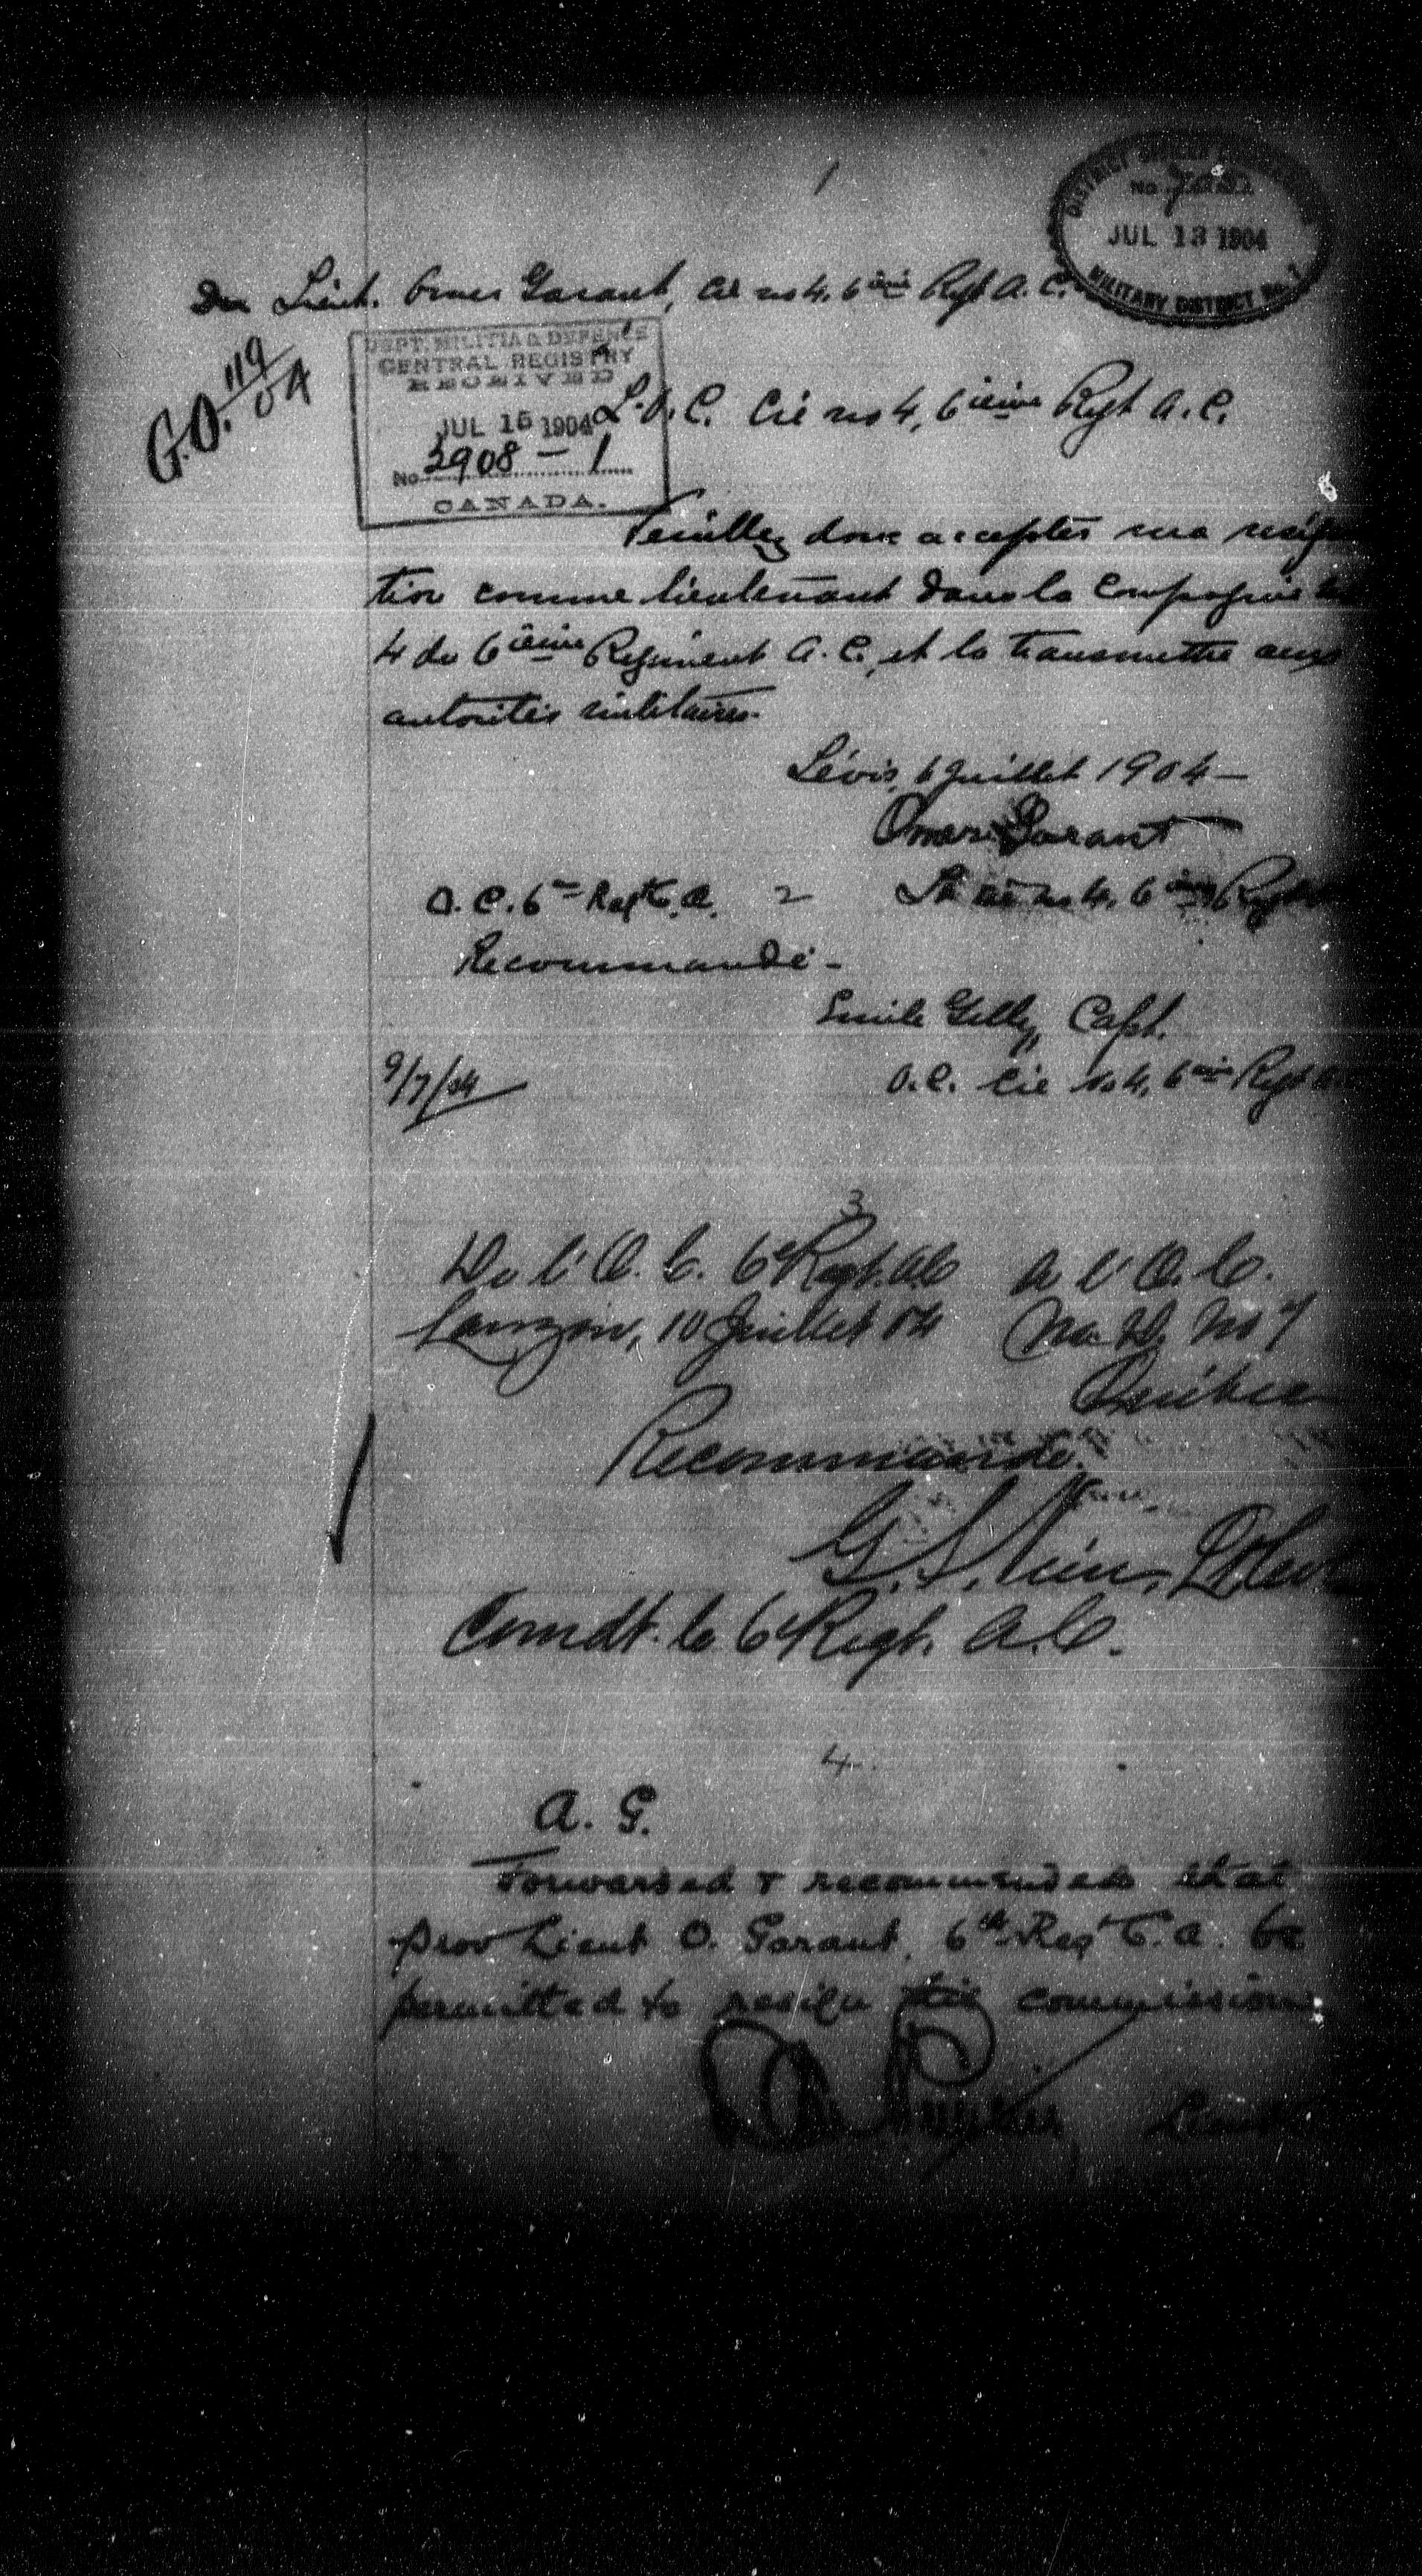 1
DISTRICT
No
JUL 13 1904
MILITARY DISTRICT No. 7
Du Lieut. Omer Garant, Cie no 4, 6ième Rgt A.C.
G.O. 119/04
DEPT. MILITIA & DEFENCE
CENTRAL REGISTRY
RECEIVED
JUL 15 1904
No 3908 - 1
CANADA.
L'O.C. Cie no 4, 6ième Rgt A.C.
Veuillez donc accepter ma résigna
tion comme lieutenant dans la Compagnie no
4 du 6ième Régiment A.C., et la transmettre aux
autorités militaires.
Lévis, 6 Juillet 1904 -
Omer Garant
Lt Cie no 4, 6ième Rgt
2
O.C. 6me Regt C.A.
Recommandé -
Emile Gelly, Capt.
9/7/04
O.C. Cie no 4, 6ième Rgt A.
3
De l'O.C. 6e Regt. A.C. A l'O.C.
Lauzon, 10 Juillet 04 M.D. No 7
Québec
Recommandé.
G. S. Lt Col
Comdt. le 6e Regt. A.C.
4.
A. G.
Forwarded & recommended that
prov Lieut O. Garant, 6th Regt C.A. be
permitted to resign his commission